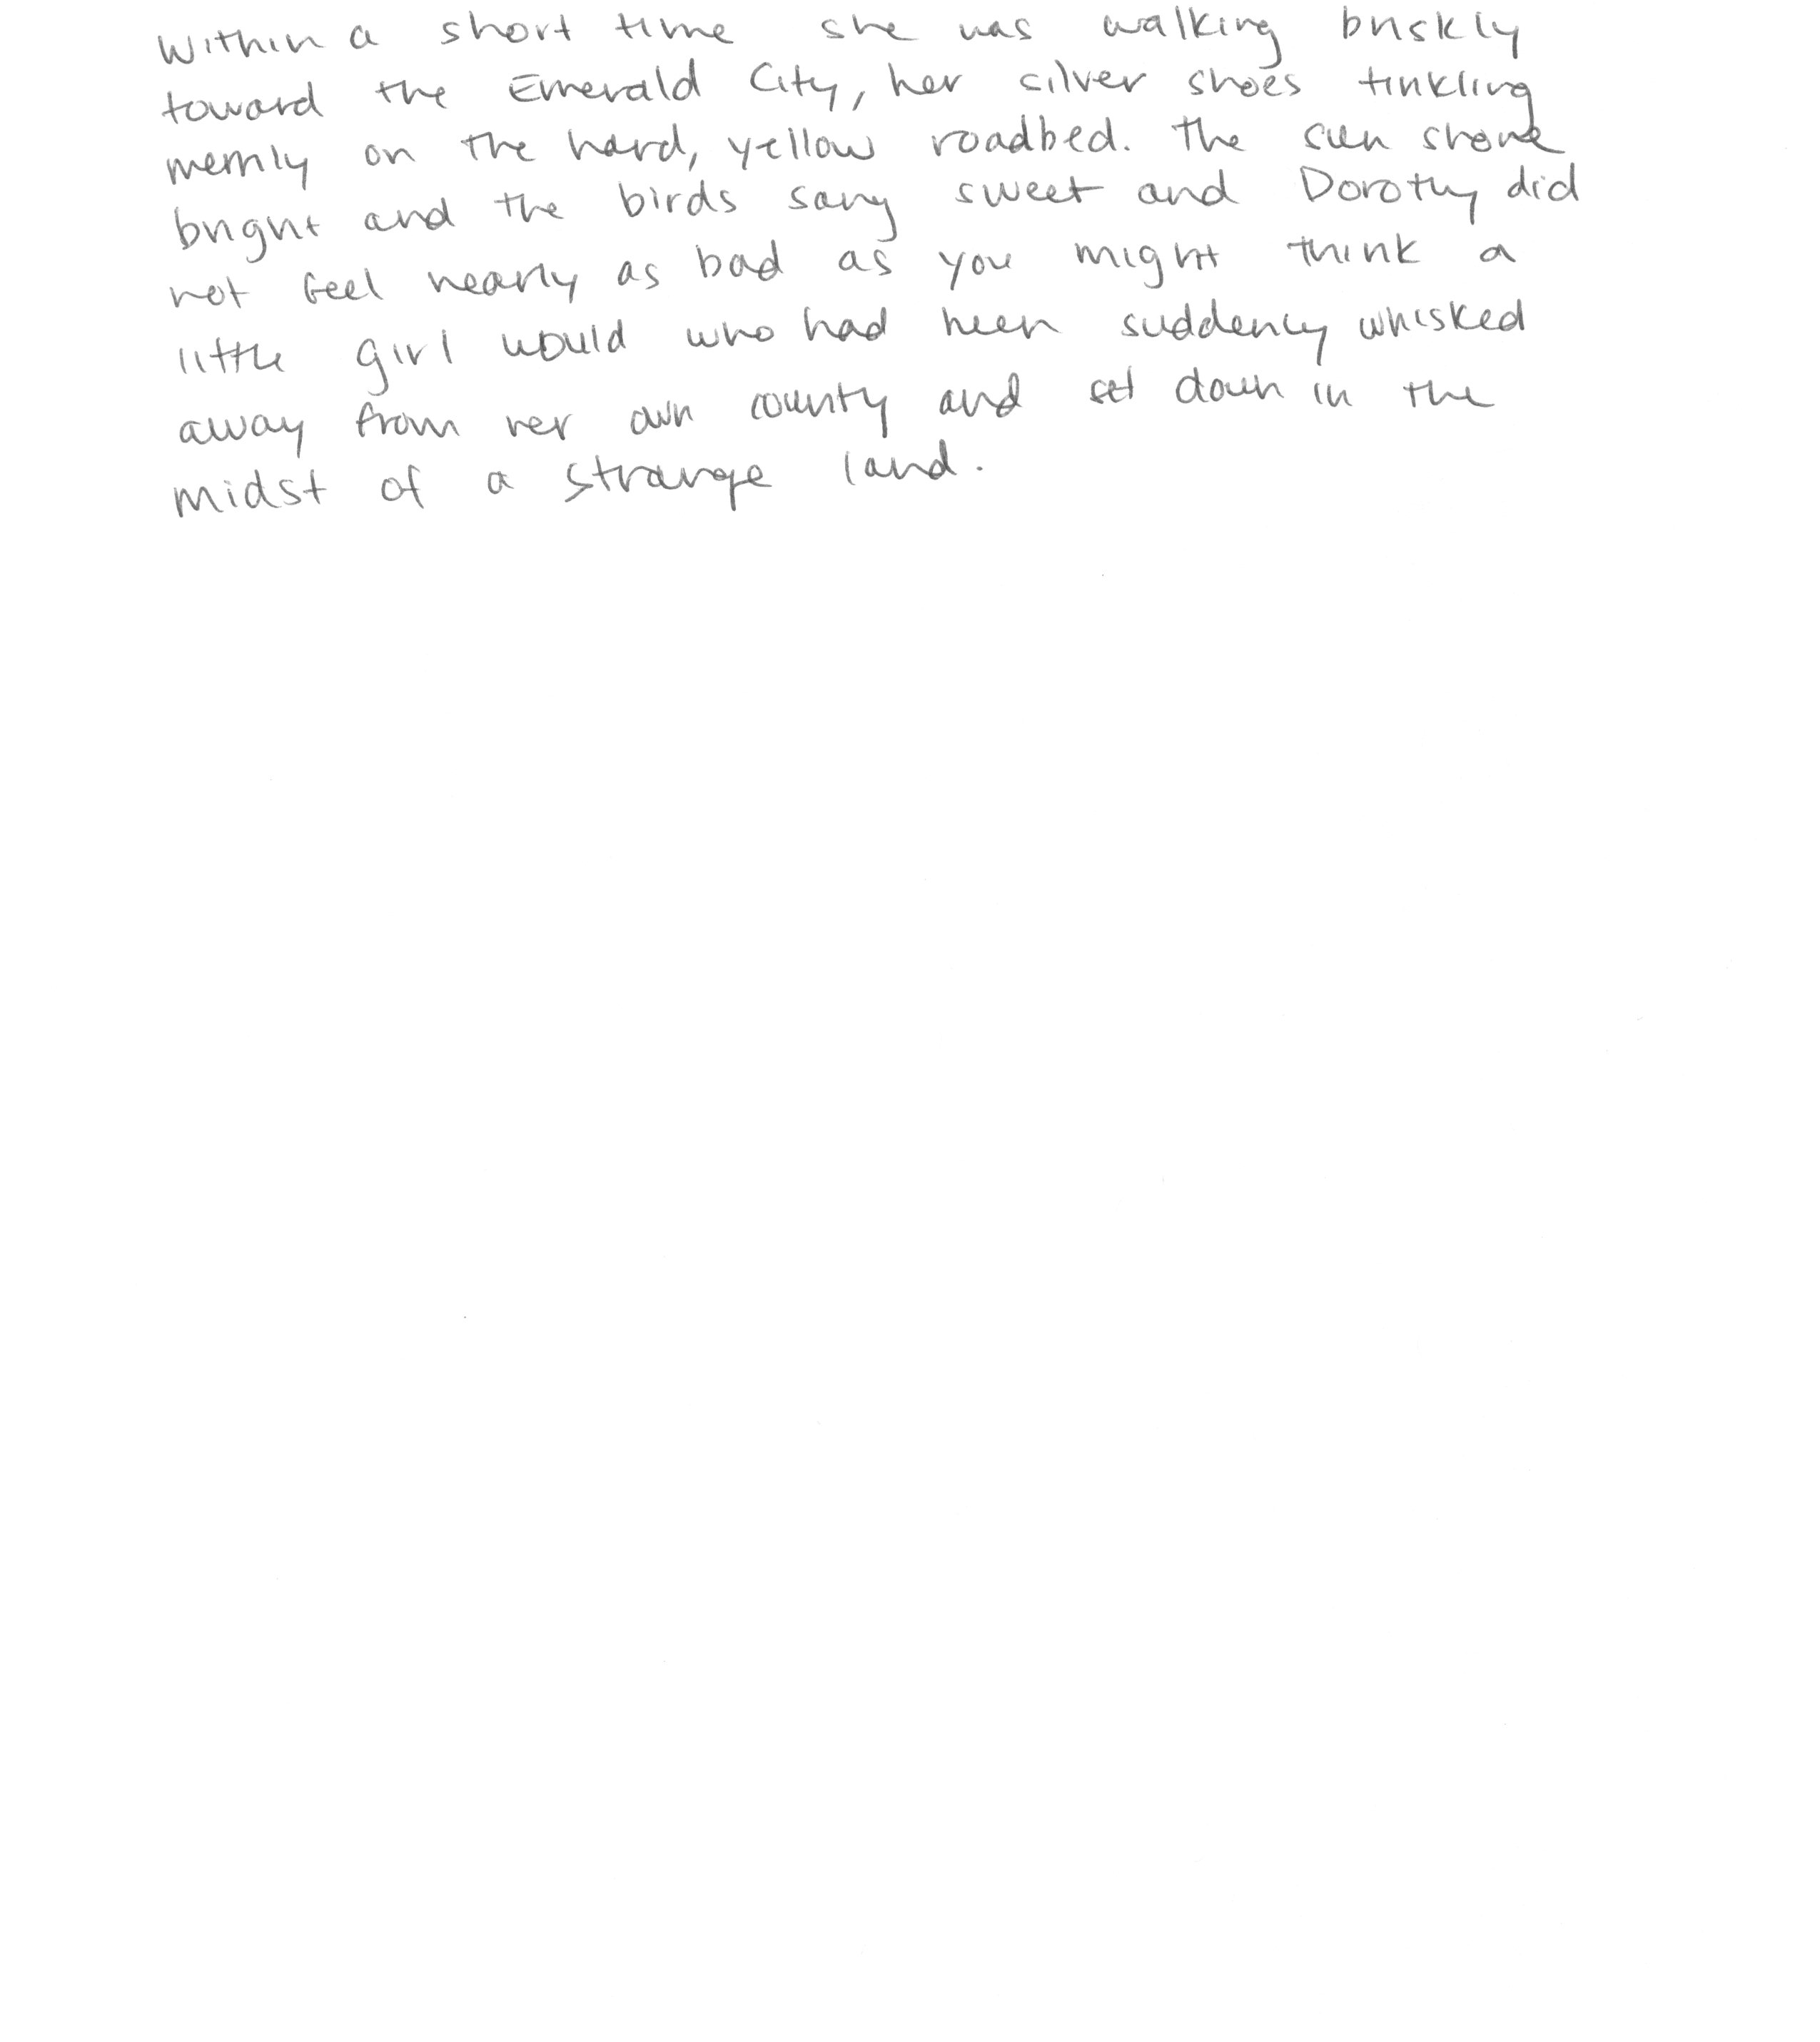 Within a short time she was walking briskly
toward the Emerald City, her silver shoes tinkling
merrily on the hard, yellow roadbed. The sun shone
bright and the birds sang sweet and Dorothy did
not feel nearly as bad as you might think a
little girl would who had been suddenly whisked
away from her own county and set down in the
midst of a strange land.